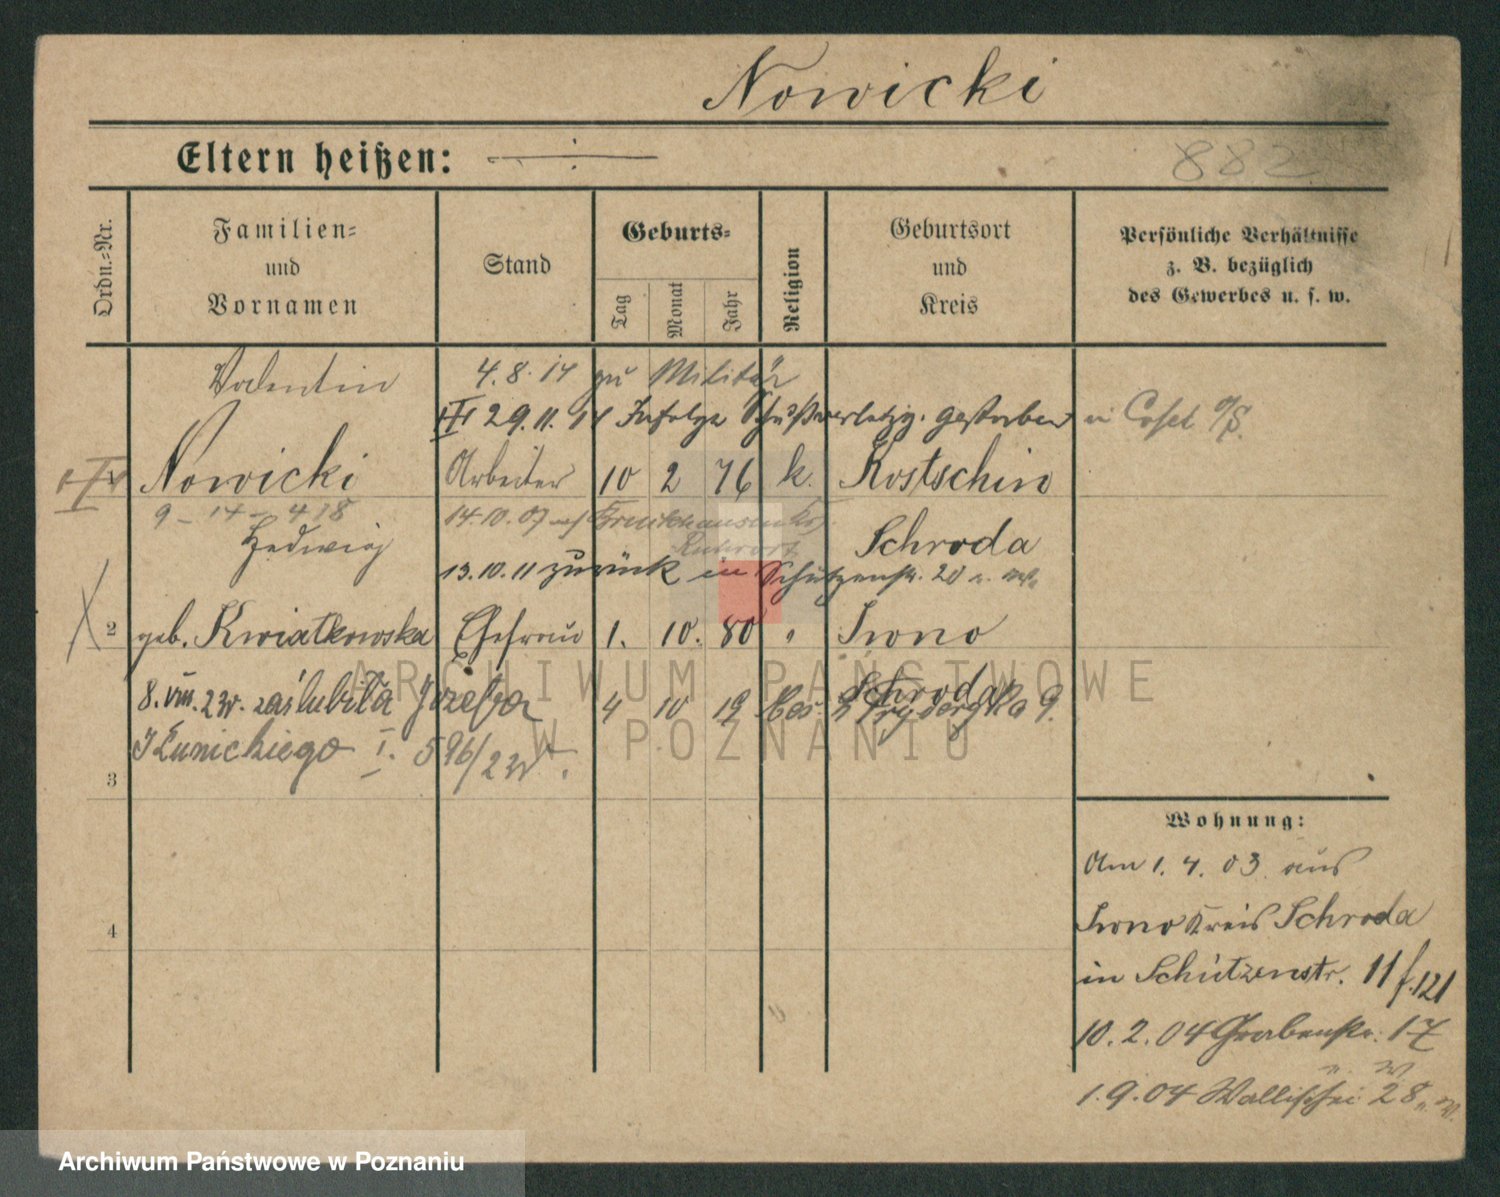 Nowicki
Eltern heißen:
882
Ordn.-Nr.
Familien-
und
Vornamen
Stand
Geburts-
Tag
Monat
Jahr
Religion
Geburtsort
und
Kreis
Persönliche Verhältnisse
z. B. bezüglich
des Gewerbes u. s. w.
Valentin 4.8.14 zu Militär
29.11.14 Infolge Schußverletzg. gestorben in Cosel O/S.
Nowicki Arbeiter 10 2 76 k. Kostschin
9 - 14 - 418 14.10.07
Hedwig Ruhrort Schroda
13.10.11 zurück in Schützenstr. 20
2 geb. Kwiatkowska Ehefrau 1. 10. 80 " Iwno
8.VIII.23r. zaślubiła Józefa 4 10 19 Schroda
3 I. 596/23r.
4
Wohnung:
Am 1.4.03 aus
Iwno Kreis Schroda
in Schützenstr. 11 f. 121
10.2.04 Grabenstr. 17
1.9.04 Wallischei 28
ARCHIWUM PAŃSTWOWE
W POZNANIU
Archiwum Państwowe w Poznaniu